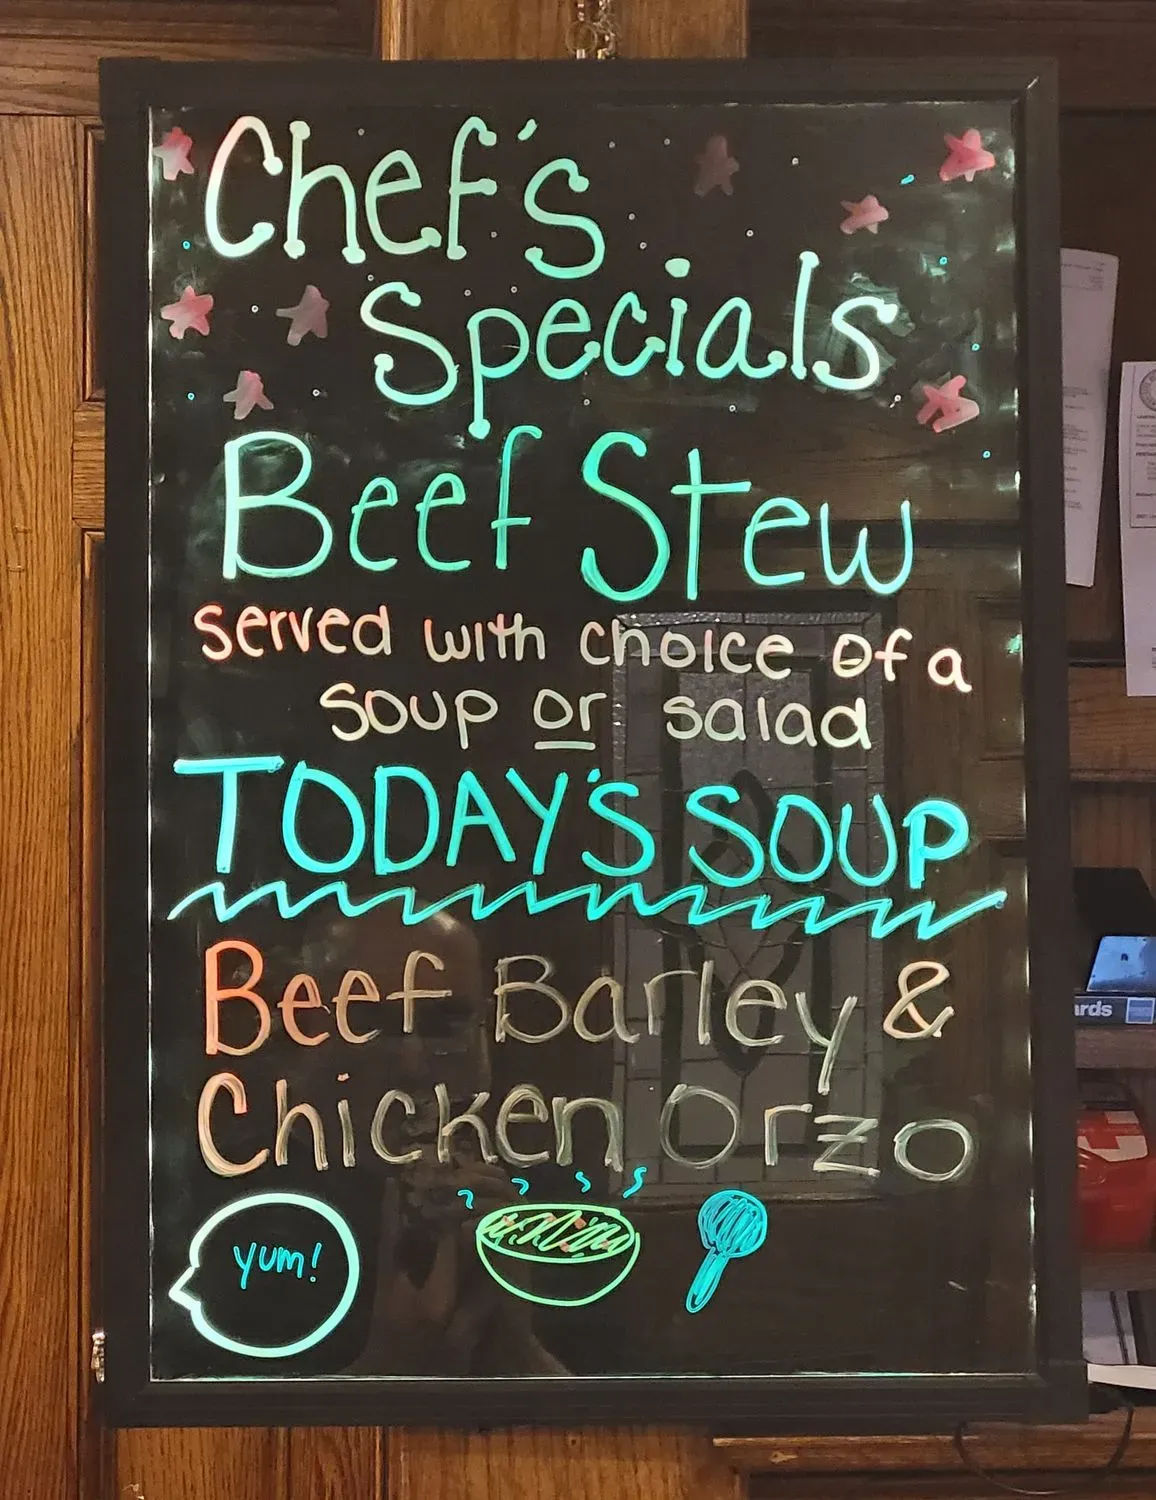 Chef's
Specials
Beef Stew
served with choice of a
soup or salad
TODAY'S SOUP
Beef Barley &
Chicken Orzo
yum!